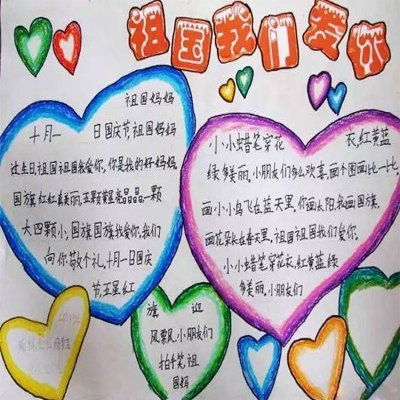 祖国我们爱你
祖国妈妈
十月一 日国庆节,祖国妈妈
过生日,祖国祖国我爱你,你是我的好妈妈,
国旗红红真美丽,五颗星星亮晶晶,一颗
大四颗小,国旗国旗我爱你,我们
向你敬个礼,十月一日国庆
节,五星红
小小蜡笔穿花 衣,红黄蓝
绿多美丽,小朋友们多么欢喜,画个图画比一比,
画小小鸟飞在蓝天里,你画太阳我画国旗,
画花朵长在春天里,祖国祖国我们爱你,
小小蜡笔穿花衣,红黄蓝绿
多美丽,小朋友们
旗 迎
风飘,小朋友们
拍手笑,祖
国妈